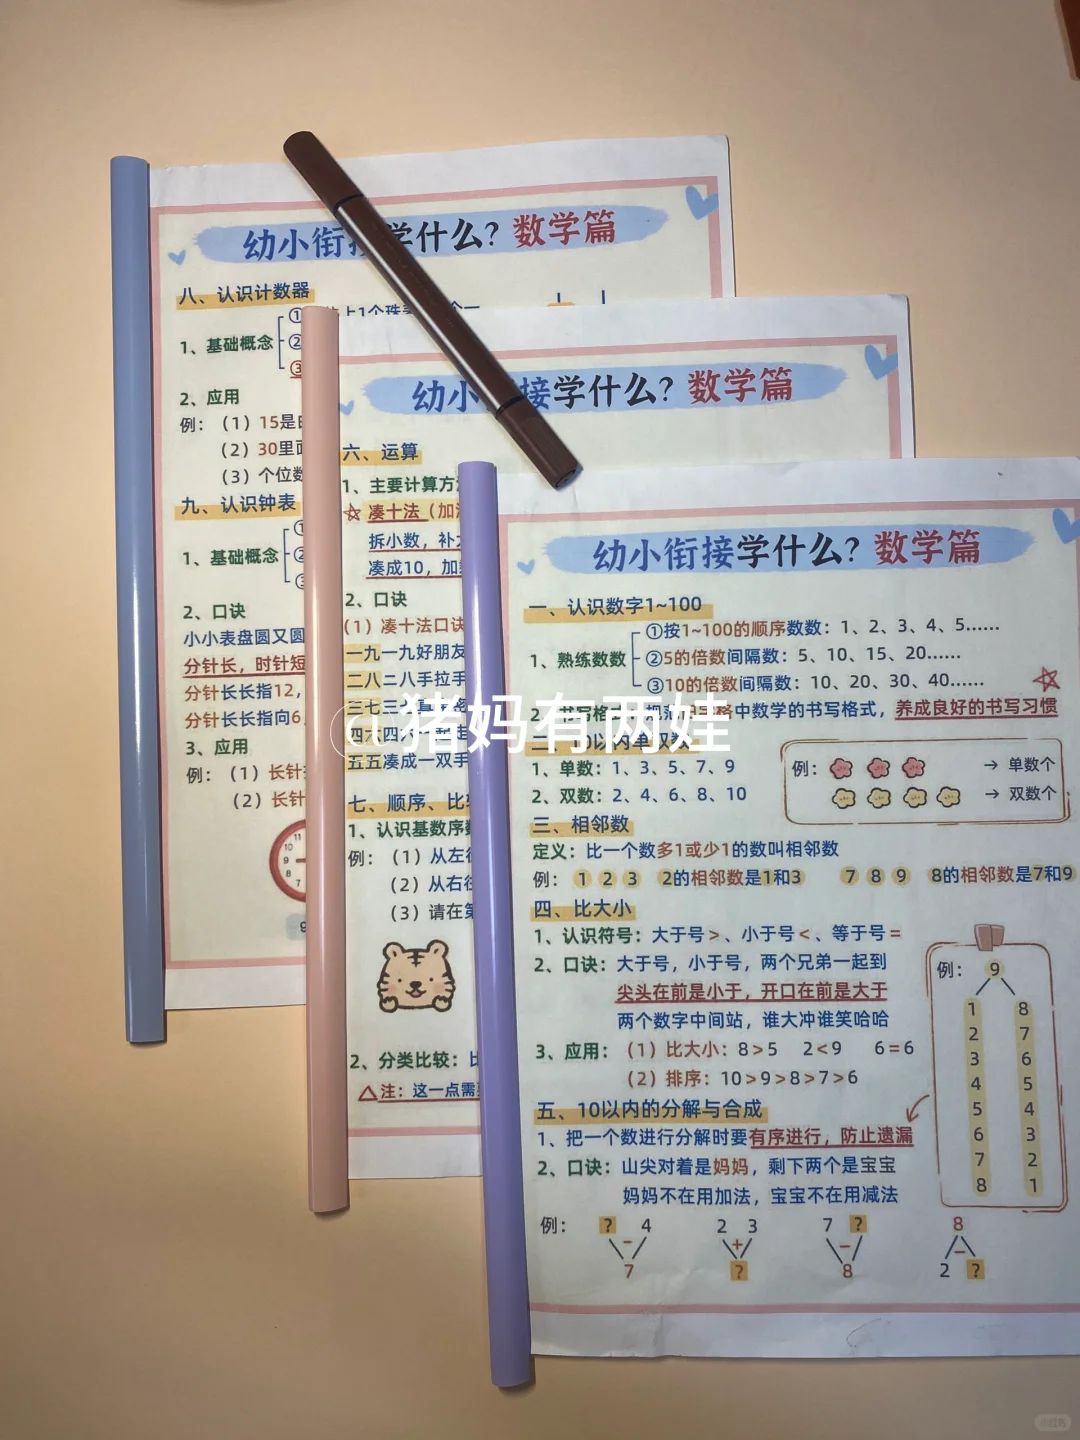 幼小衔接学什么？数学篇
八、认识计数器
1、基础概念
①
②
③
2、应用
例：（1）15是
（2）30里
（3）个位数
九、认识钟表
1、基础概念
①
②
③
2、口诀
小小表盘圆又圆
分针长，时针短
分针长长指12，
分针长长指向6
3、应用
例：（1）长针
（2）长针
幼小衔接学什么？数学篇
六、运算
1、主要计算方
☆凑十法（加
拆小数，补
凑成10，加
2、口诀
（1）凑十法口诀
一九一九好朋友
二八二八手拉手
三七三七
四六四六
五五凑成一双手
七、顺序、比较
1、认识基数序数
例：（1）从左往
（2）从右往
（3）请在第
2、分类比较：
△注：这一点需
幼小衔接学什么？数学篇
一、认识数字1~100
1、熟练数数
①按1~100的顺序数数：1、2、3、4、5……
②5的倍数间隔数：5、10、15、20……
③10的倍数间隔数：10、20、30、40……
2、书写格式：规范田字格中数学的书写格式，养成良好的书写习惯
@猪妈有两娃
二、10以内单双数
1、单数：1、3、5、7、9
2、双数：2、4、6、8、10
例：→ 单数个
→ 双数个
三、相邻数
定义：比一个数多1或少1的数叫相邻数
例：1 2 3 2的相邻数是1和3 7 8 9 8的相邻数是7和9
四、比大小
1、认识符号：大于号>、小于号<、等于号=
2、口诀：大于号，小于号，两个兄弟一起到
尖头在前是小于，开口在前是大于
两个数字中间站，谁大冲谁笑哈哈
3、应用：（1）比大小：8>5 2<9 6=6
（2）排序：10>9>8>7>6
例：9
1 8
2 7
3 6
4 5
5 4
6 3
7 2
8 1
五、10以内的分解与合成
1、把一个数进行分解时要有序进行，防止遗漏
2、口诀：山尖对着是妈妈，剩下两个是宝宝
妈妈不在用加法，宝宝不在用减法
例：? 4 2 3 7 ? 8
- + - -
7 ? 8 2 ?
小红书